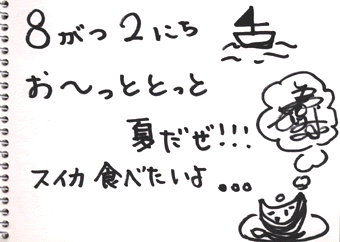 8がつ2にち
お〜っととっと
夏だぜ!!!
スイカ食べたいよ...